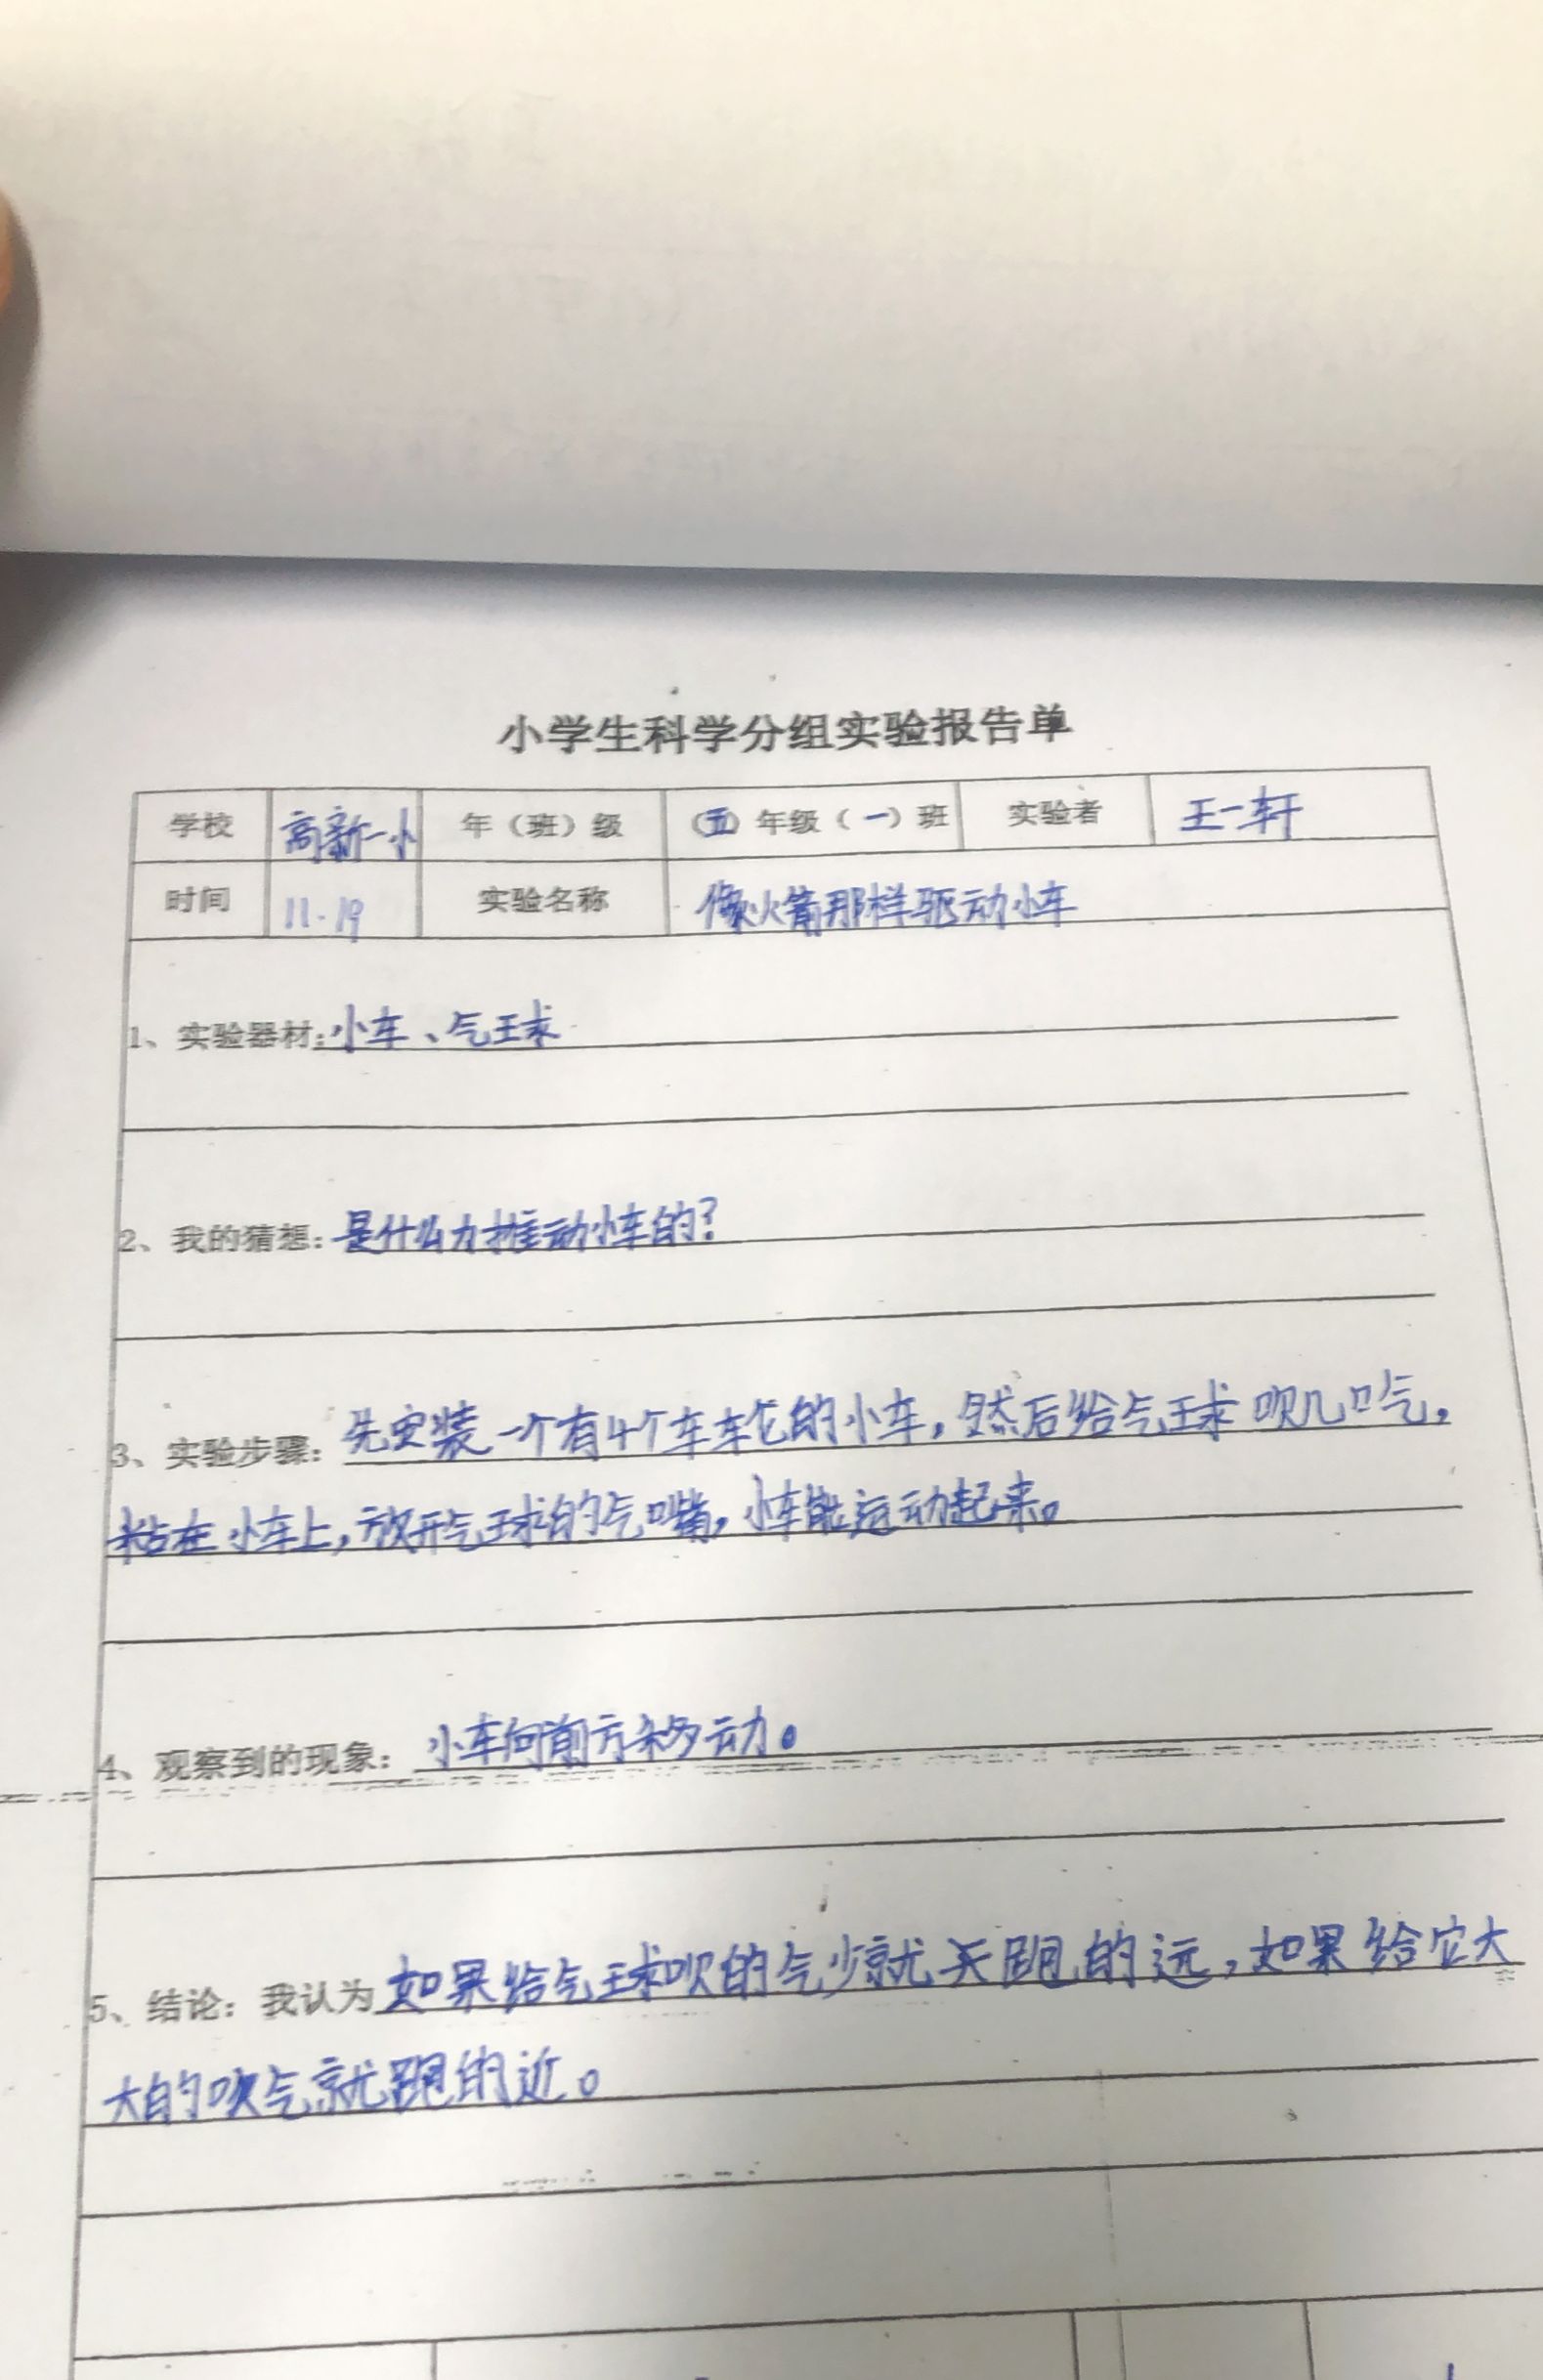 小学生科学分组实验报告单
学校 高新一小 年（班）级 （五）年级（一）班 实验者 王一轩
时间 11.19 实验名称 像火箭那样驱动小车
1、实验器材：小车、气球
2、我的猜想：是什么力推动小车的？
3、实验步骤：先安装一个有4个车轮的小车，然后给气球吹几口气，
粘在小车上，放开气球的气嘴，小车能运动起来。
4、观察到的现象：小车向前方移动。
5、结论：我认为如果给气球吹的气少就跑的远，如果给它大
大的吹气就跑的近。